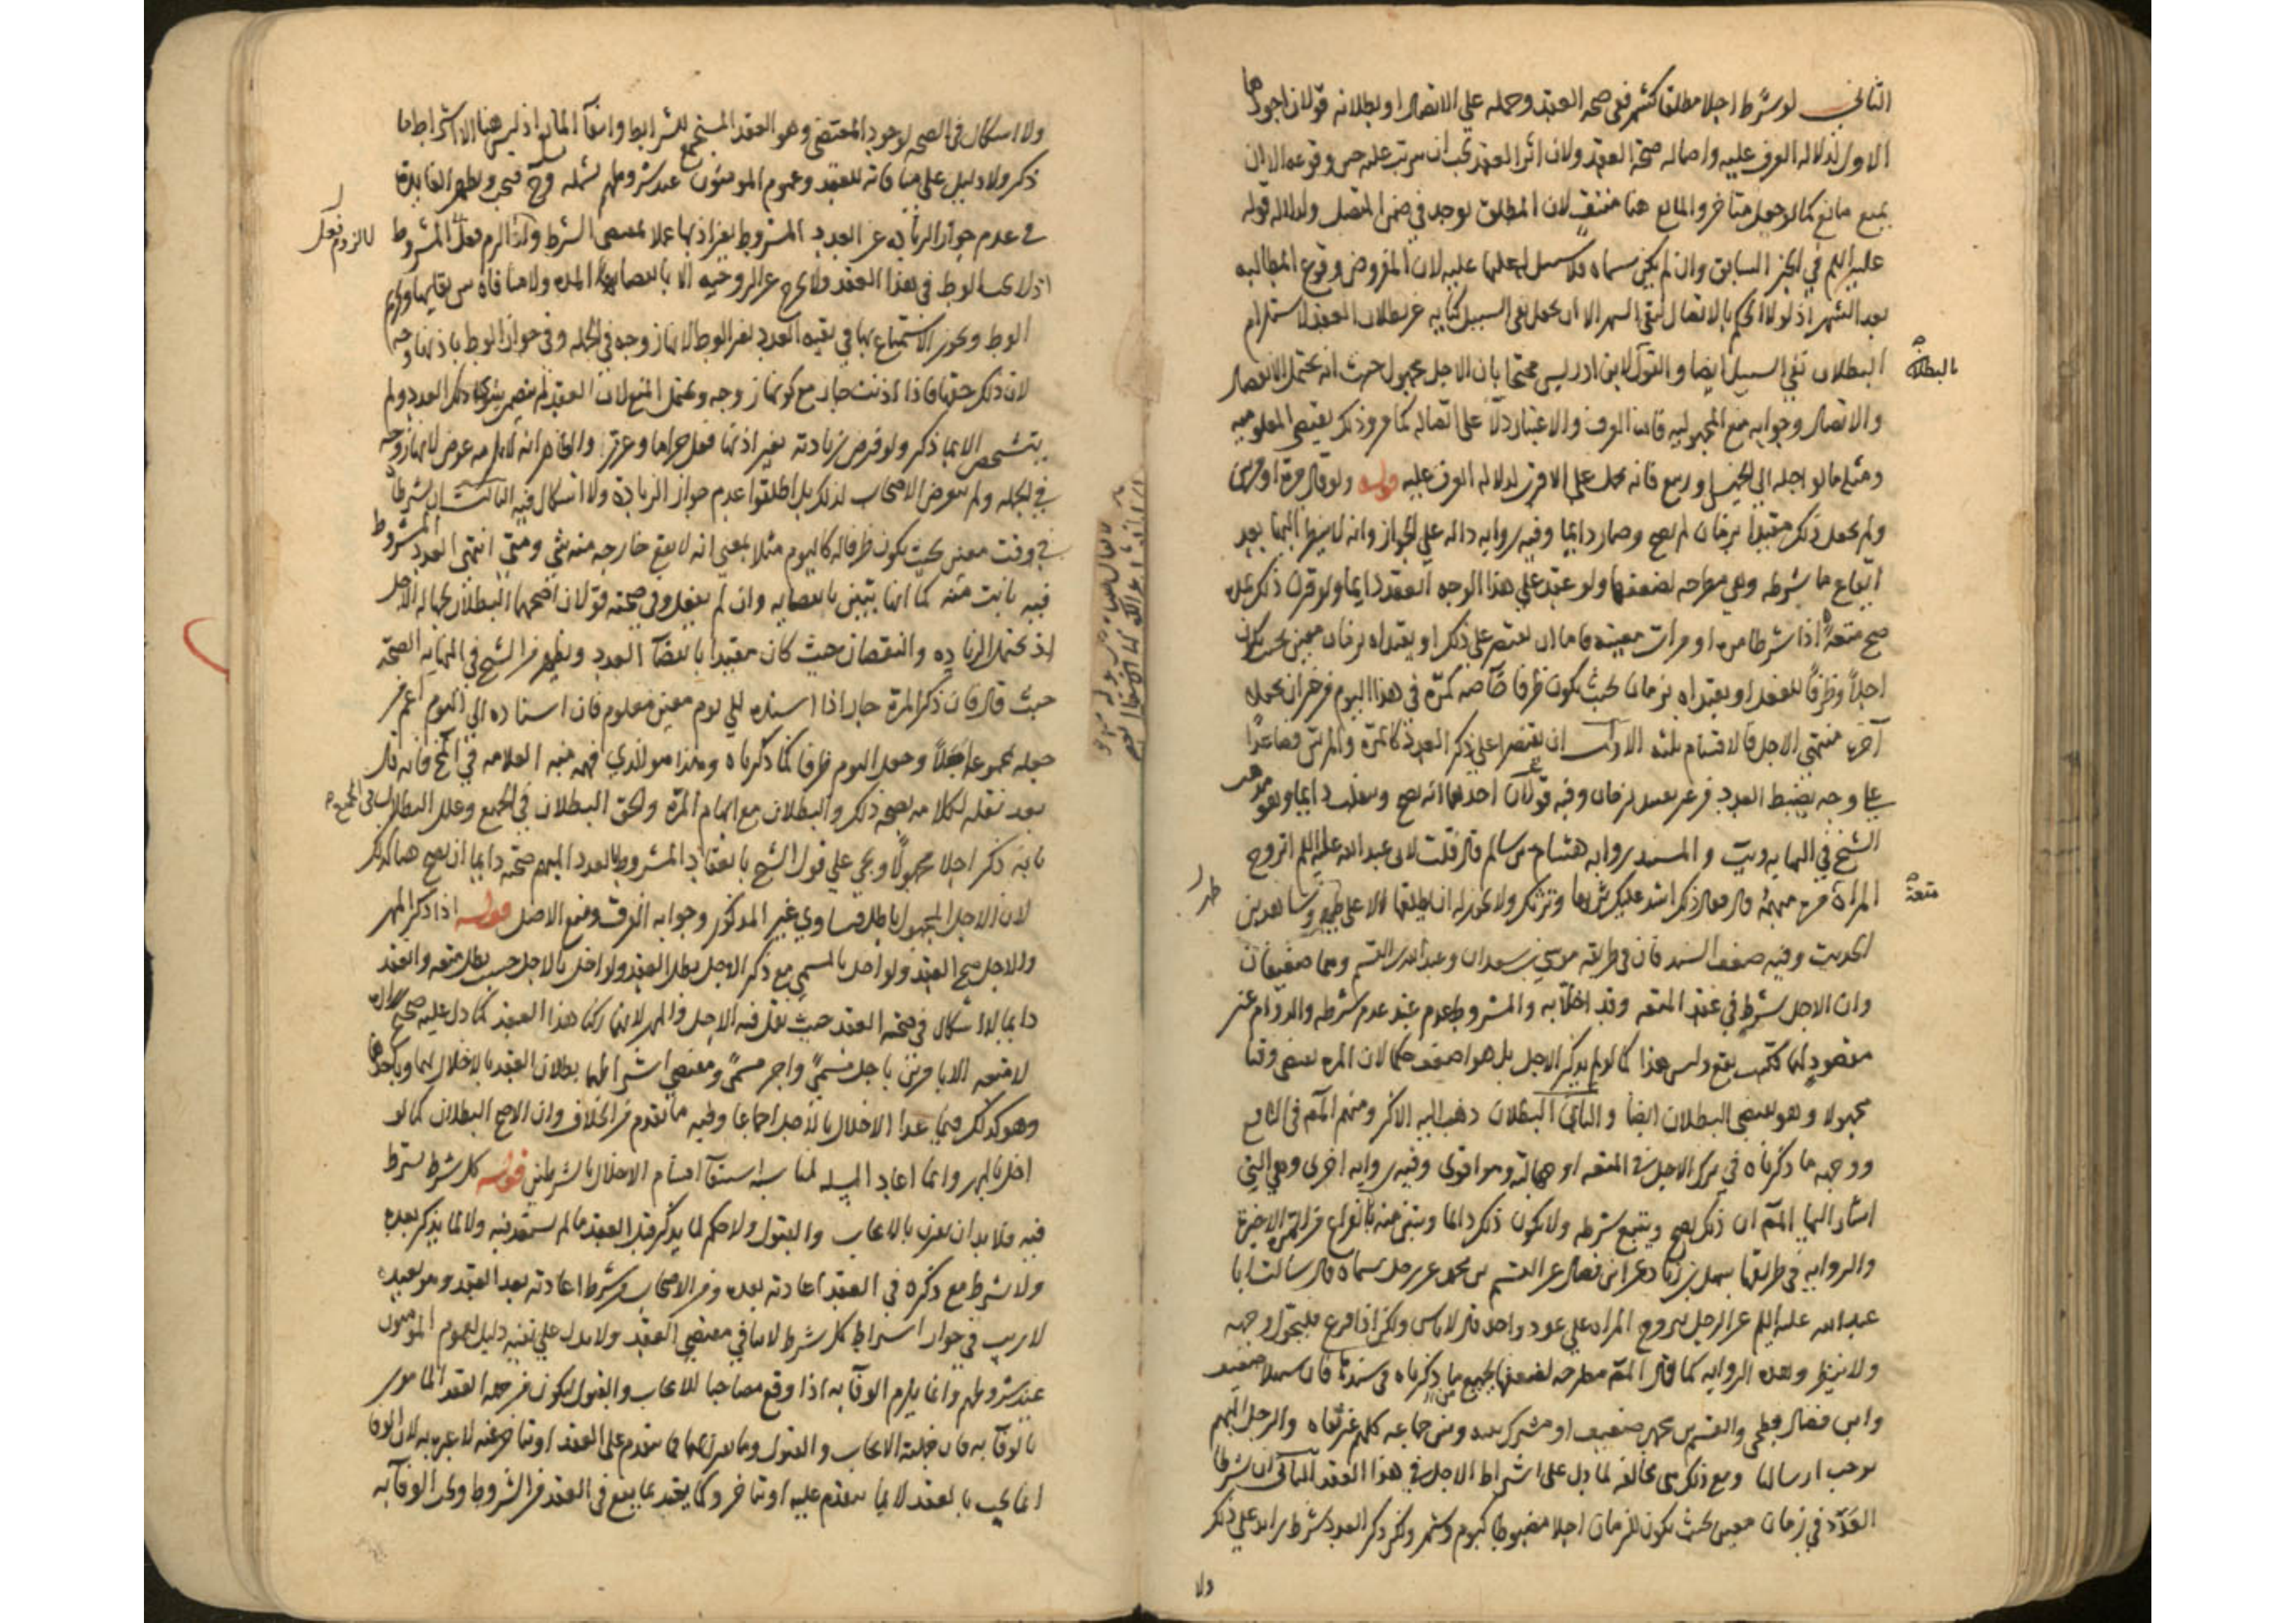 الثاني لو شرط اجلا مطلقا كشهر ففي صحة العقد وحمله علي الاتصال او بطلانه قولان اجودهما
الاول لدلالة العرف عليه واصالة صحة العقد ولان اثر العقد يجب ان يترتب عليه حين وقوعه الا ان
يمنع مانع كما لو جعل متاخر والمانع هنا منتف لان المطلق يوجد في ضمن المتصل ولدلالة قوله
عليه السلم في الخبر السابق وان لم يكن سماه فلا سبيل له عليها لان المفروض وقوع المطالبه
بعد الشهر اذ لولا الحكم بالاتصال لبقي الشهر الا ان يجعل نفي السبيل كناية عن بطلان العقد لاستلزام
البطلان نفي السبيل ايضا والقول لابن ادريس محتجا بان الاجل مجهول حيث انه يحتمل الانفصال
بالبطلان
والاتصال وجوابه منع المجهولية فان العرف والاعتبار دلا على اتصاله كما مر وذلك يقتضي المعلوميه
ومثله ما لو اجله الي الخميس وربيع فانه يحمل علي الاقرب لدلالة العرف عليه قوله ولو قال مرة او مرتين
ولم يجعل ذلك مقيدا بزمان لم يصح وصار دايما وفيه رواية دالة علي الجواز وانه لا ينظر اليها بعد
ايقاع ما شرطه وهي مطرحه لضعفها ولو عقد علي هذا الوجه انعقد دايما ولو قرن ذلك بمدة
صح متعة اذا شرطا مرة او مرات معينه فاما ان يقتصر علي ذلك او يقيداه بزمان معين بحيث يكون
اجلا وظرفا للعقد او يقيداه بزمان بحيث يكون ظرفا خاصه كمرة في هذا اليوم من غير ان يجعلا
آخره منتهي الاجل فالاقسام ثلثه الاول ان يقتصرا علي ذكر العدد كالمرة والمرتين فصاعدا
علي وجه يضبط العدد من غير تقييد بزمان وفيه قولان احدهما انه يصح وينقلب دايما وهو مذهب
الشيخ في النهاية ويب والمستند رواية هشام بن سالم قال قلت لابي عبد الله عليه السلم اتزوج
المراة مرة مبهمة قال فقال ذلك اشد عليك ترثها وترثك ولا يجوز لك ان تطلقها الا على طهر وشاهدين
متعة
طهر
الحديث وفيه ضعف السند فان في طريقه موسي بن سعدان وعبد الله بن القسم وهما ضعيفان
وان الاجل شرط في عقد المتعه وقد اخلا به والمشروط عدم عند عدم شرطه والدوام غير
مقصود لهما فكيف يقع وليس هذا كما لو لم يذكر الاجل بل هو اضعف حكما لان المرة تقتضي وقتا
مجهولا وهو يقتضي البطلان ايضا والثاني البطلان ذهب اليه الاكثر ومنهم المصّ في النافع
ووجهه ما ذكرناه في ترك الاجل في المتعه او جهالته وهو اقوى وفيه رواية اخرى وهي التي
اشار اليها المصّ ان ذلك يصح ويتبع شرطه ولا يكون ذلك دايما
والرواية في طريقها سهل بن زياد عن ابن فضال عن القسم بن محمد عن رجل سماه قال سالت ابا
عبد الله عليه السلم عن الرجل يتزوج المراه علي عود واحد قال لا باس ولكن اذا فرغ فليحول وجهه
ولا ينظر وهذه الرواية كما قال المصّ مطرحه لضعفها بجميع من ذكرناه في سندها فان سهلا ضعيف
وابن فضال فطحي والقسم بن محمد ضعيف او مشترك بينه وبين جماعه كلهم غير ثقاه والرجل المبهم
يوجب ارسالها ومع ذلك هي مخالفة لما دل على اشتراط الاجل في هذا العقد الثاني ان شرطا
العدد في زمان معين بحيث يكون الزمان اجلا مضبوطا كيوم وشهر ولكن ذكر العدد شرط زايد علي ذلك
ولا
ولا اشكال في الصحه لوجود المقتضي وهو العقد المستجمع للشرايط وانتفآ المانع اذ ليس هنا الا اشتراط ما
ذكر ولا دليل علي منافاته للعقد وعموم المومنون عند شروطهم يشمله وح فيجب ويظهر الفايدة
في عدم جواز الزيادة عن العدد المشروط بغير اذنها عملا بمقتضي الشرط وكذا لزم فعل المشروط
لا لزوم فعل
اذ لا يجب الوطي في هذا العقد ولا تخرج عن الزوجيه الا بانقضآ المدة ولا منافاة بين بقايها وتحريم
الوطي ويجوز الاستمتاع بها في بقية العدد بغير الوطي لانها زوجه في الجملة وفي جواز الوطي باذنها وجه
لان ذلك حقها فاذا اذنت جاز مع كونها زوجه ويحتمل المنع لان العقد لم يتضمن سوى ذلك العدد ولم
يتشخص الا بما ذكر ولو فرض زيادته بغير اذنها فعل حراما وعزر والظاهر انه لا يلزمه عوض لانها زوجه
في الجملة ولم يتعرض الاصحاب لذلك بل اطلقوا عدم جواز الزيادة ولا اشكال فيه الثالث ان شرطا
في وقت معين بحيث يكون ظرفا له كاليوم مثلا بمعني انه لا يقع خارجه منه شي ومتي انتهي العدد المشروط
فيه بانت منه كما انها تبين بانقضايه وان لم يفعل وفي صحته قولان اصحهما البطلان لجهالة الاجل
اذ يحتمل الزياده والنقصان حيث كان مقيدا بانقضآ العدد ويظهر من الشيخ في النهايه الصحة
حيث قال فان ذكر المرة جاز اذا اسنده الي يوم معين معلوم فان اسناده الي اليوم اعم من
جعله مجموعه اجلا وجعل اليوم ظرفا كما ذكرناه وهذا هو الذي فهمه منه العلامه في المخ فانه قال
بعد نقله لكلامه بصحة ذلك والبطلان مع ابهام المرة والحق البطلان في الجميع وعلل البطلان في الجميع
بانه ذكر اجلا مجهولا ويجي علي قول الشيخ بانعقاد المشروط بالعدد المبهم صحته دايما ان يصح هنا كذلك
لان الاجل المجهول باطل فساوي غير المذكور وجوابه الفرق ومنع الاصل قوله اذا ذكر المهر
والاجل صح العقد ولو اخل بالمسمي مع ذكر الاجل بطل العقد ولو اخل بالاجل حسب بطل متعه وانعقد
دايما لا اشكال في صحة العقد حيث يقال فيه الاجل والمهر لانهما ركنا هذا العقد كما دل عليه صحيح زرارة
لا متعه الا بامرين باجل مسمّي واجر مسمّي ومقتضي اشتراطهما بطلان العقد بالاخلال بهما وباحدهما
وهو كذلك فيما عدا الاخلال بالاجل اجماعا وفيه ما تقدم من الخلاف وان الاصح البطلان كما لو
اخل بالمهر وانما اعاد المسئلة لمناسبة استيفآ اقسام الاخلال بالشرطين قوله كل شرط يشترط
فيه فلا بد ان يقرن بالايجاب والقبول ولا حكم لما يذكر قبل العقد ما لم يستعد فيه ولا لما يذكر بعده
ولا يشترط مع ذكره في العقد اعادته بعده ومن الاصحاب من شرط اعادته بعد العقد وهو بعيد
لا ريب في جواز اشتراط كل شرط لا ينافي مقتضي العقد ولا يدل علي نفيه دليل لعموم المؤمنون
عند شروطهم وانما يلزم الوفآ به اذا وقع مصاحبا للايجاب والقبول ليكون من جملة العقد المامور
بالوفآ به فان جملته الايجاب والقبول وما يقترن بهما فما يتقدم علي العقد او يتاخر عنه لا عبرة به لان الوفا
انما يجب بالعقد لا بما يتقدم عليه او يتاخر وكما يعتد بما يقع في العقد من الشروط ويجب الوفآ به